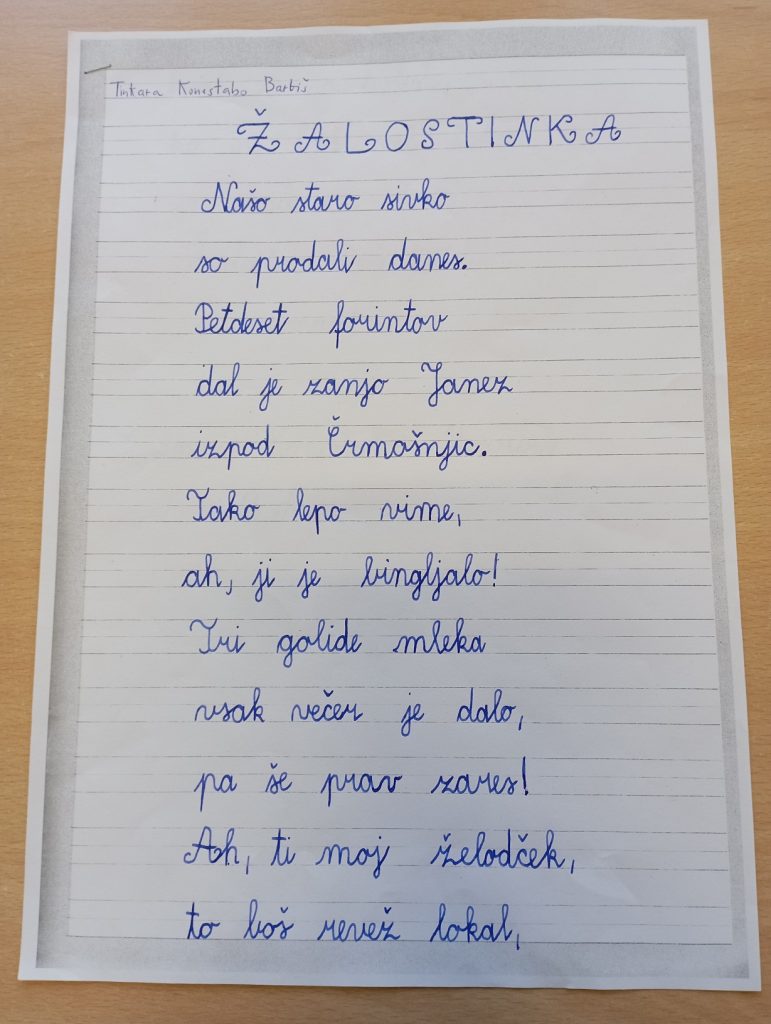 Tinkara Konestabo Barbiš
ŽALOSTINKA
Našo staro sivko
so prodali danes.
Petdeset forintov
dal je zanjo Janez
izpod Črmošnjic.
Tako lepo vime,
ah, ji je bingljalo!
Tri golide mleka
vsak večer je dalo,
pa še prav zares!
Ah, ti moj želodček,
to boš revež lokal,